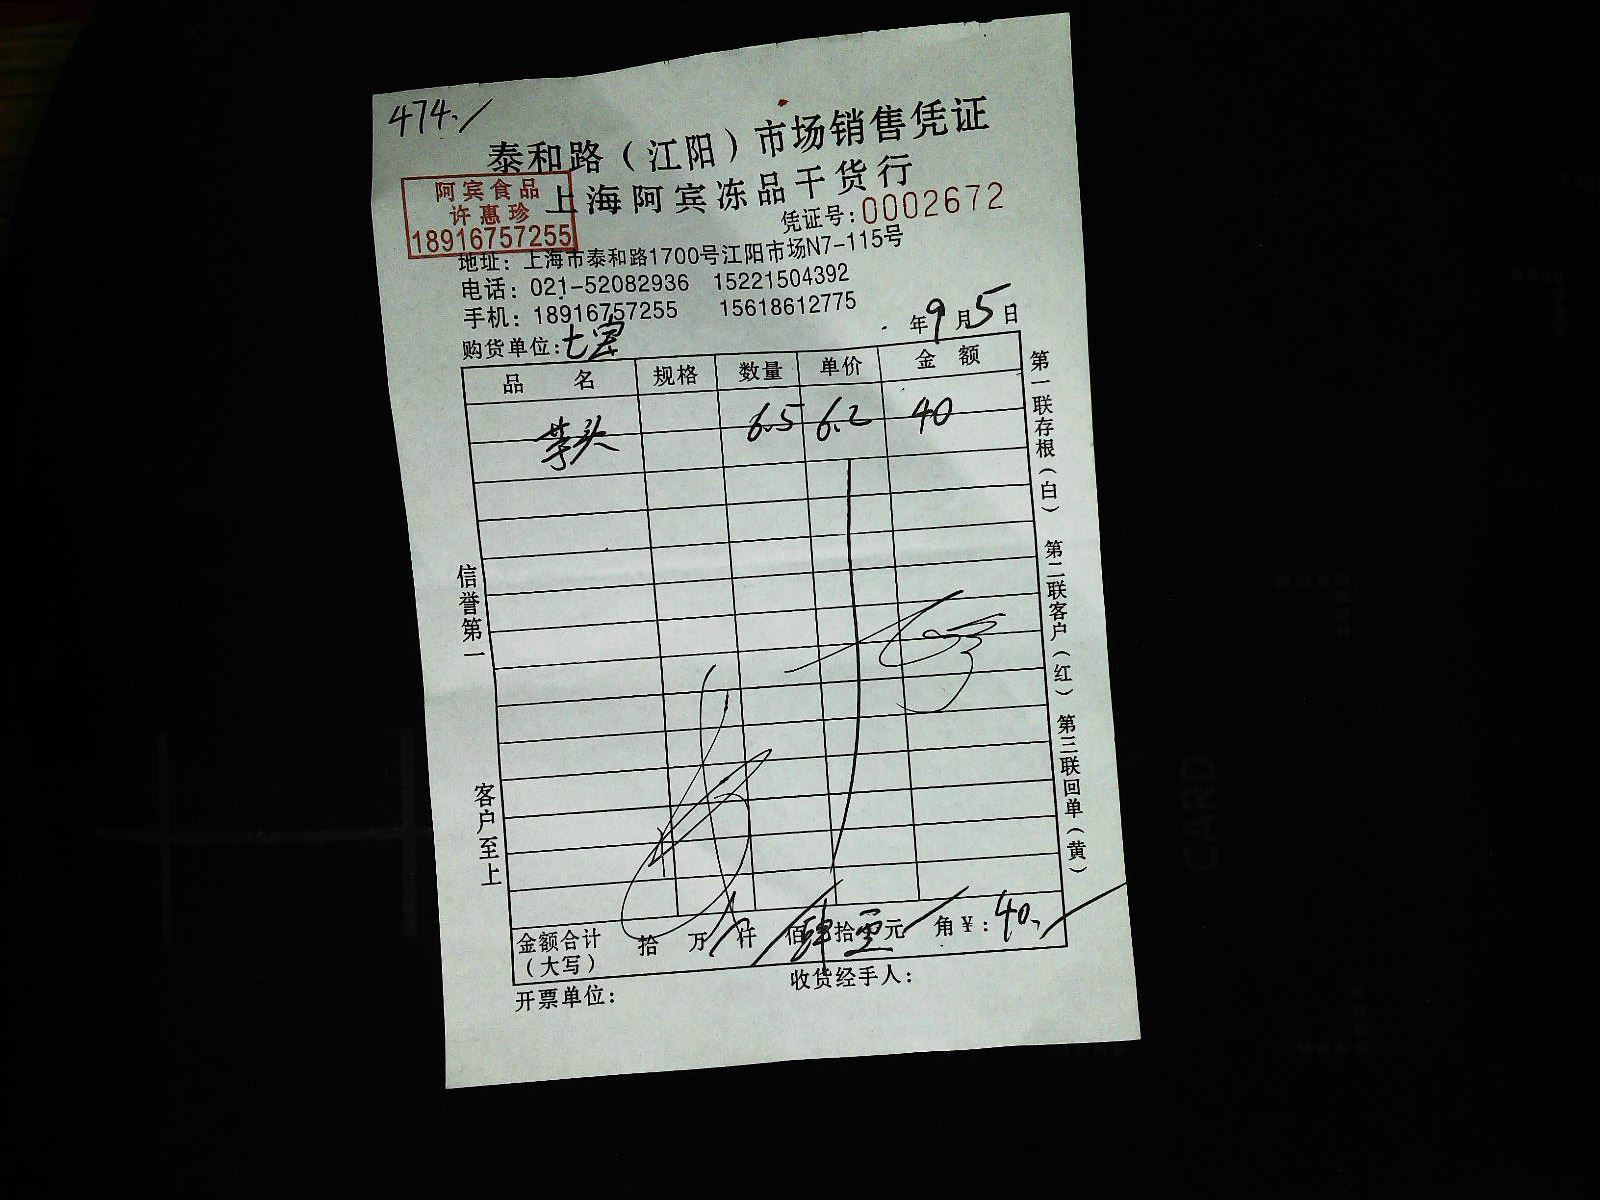 474./
泰和路（江阳）市场销售凭证
上海阿宾冻品干货行
阿宾食品
许惠珍
18916757255
凭证号:0002672
地址：上海市泰和路1700号江阳市场N7-115号
电话：021-52082936 15221504392
手机：18916757255 15618612775
购货单位:七宝 年9月5日
品名 规格 数量 单价 金额
芋头 6.5 6.2 40
信誉第一
客户至上
第一联存根（白） 第二联客户（红） 第三联回单（黄）
金额合计（大写） 拾 万 仟 佰肆拾零元 角￥:40.
开票单位： 收货经手人：
CARD